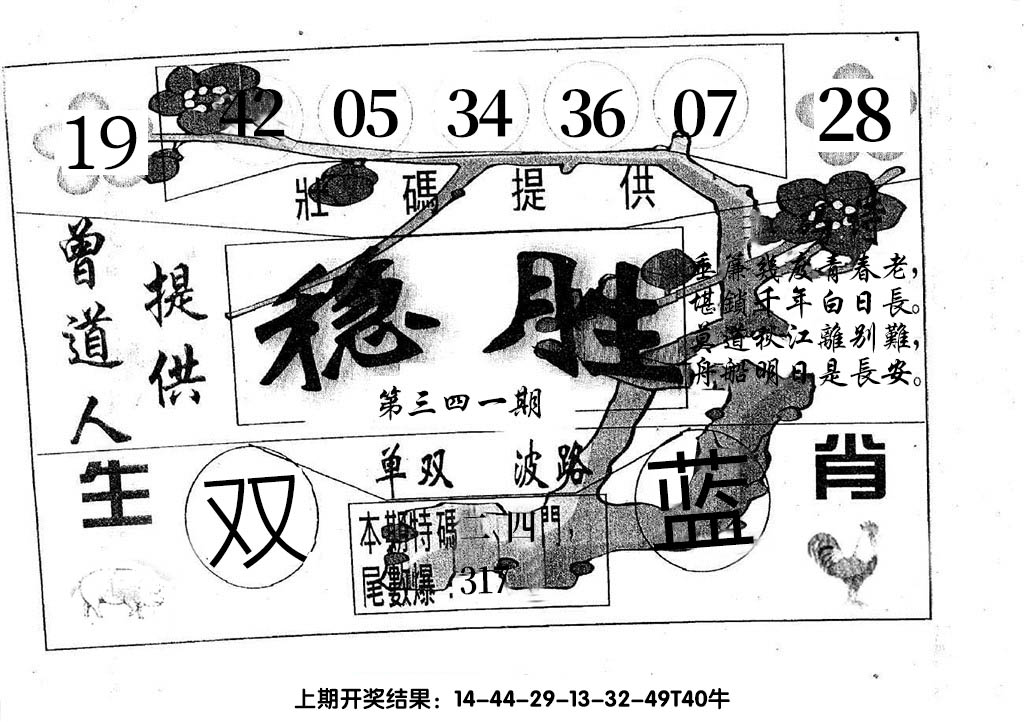 19 42 05 34 36 07 28
壯碼提供
曾道人
提供
稳胜
第三四一期
垂簾幾度青春老，
堪鎖千年白日長。
莫道秋江離别難，
舟船明日是長安。
单双 波路
生肖
双
蓝
本期特碼二、四門，
尾數爆：317
上期开奖结果：14-44-29-13-32-49T40牛